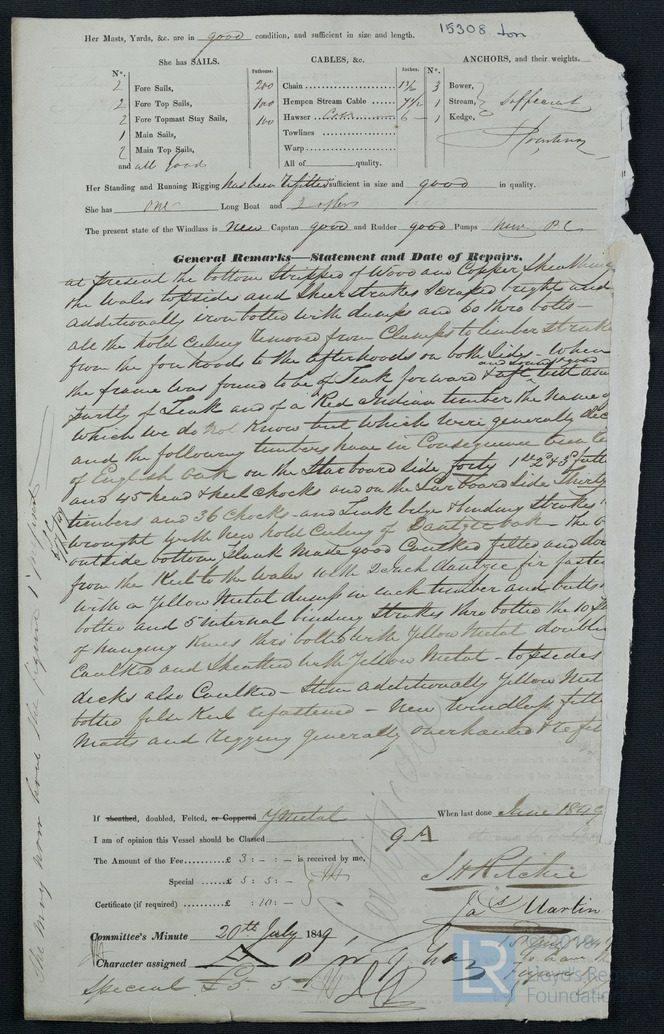 15308 Iron
Her Masts, Yards, &c. are in good condition, and sufficient in size and length.
She has SAILS. CABLES, &c. ANCHORS, and their weights.
N°. Fathoms. Inches. N°.
2 Fore Sails, 200 Chain 3 Bower,
2 Fore Top Sails, 100 Hempen Stream Cable 1 Stream, sufficient
2 Fore Topmast Stay Sails, 100 Hawser 6 1 Kedge,
1 Main Sails, Towlines
2 Main Top Sails, Warp
and all good All of quality.
Her Standing and Running Rigging has been refitted sufficient in size and good in quality.
She has one Long Boat and 3 others
The present state of the Windlass is new Capstan good and Rudder good Pumps
General Remarks—Statement and Date of Repairs.
at present the bottom stripped of Wood and Copper Sheathing
the Wales topsides and Sheerstrakes Scraped bright and
additionally iron bolted with dumps and 60 thro bolts
all the hold Ceiling removed from Clamps to limber strake
from the fore hoods to the after hoods on both Sides - When
the frame was found to be of Teak forward & aft
partly of Teak and of a Red Indian timber the name of
which we do not know but which were generally
and the following timbers have in Consequence been
of English oak on the Starboard side forty 1st 2d & 3d
and 45 head & heel chocks and on the Larboard side thirty
timbers and 36 chocks - and Teak bilge & binding strakes
wrought with New hold Ceiling of Dantzic oak - the
outside bottom plank made good Caulked felted and
from the Keel to the Wales with 2 inch dantzic fir
with a Yellow Metal dump in each timber and butts
bolted and 5 internal binding Strakes thro bolted the 10
of hanging Knees thro bolted with Yellow Metal doubling
Caulked and Sheathed with Yellow Metal - topsides
decks also Caulked - Stem additionally Yellow Metal
bolted false Keel refastened - New Windlass
Masts and rigging generally overhauled &
If sheathed, doubled, Felted, or Coppered Y Metal When last done June 1849
I am of opinion this Vessel should be Classed 9 A
The Amount of the Fee £ 3 : - : - is received by me,
Special £ 5 : 5 : -
Certificate (if required) £ : 10 : -
J H Ritchie
Jas Martin
Committee's Minute 20th July 1849
Character assigned A
Special £5 5 -
They may now have the figure 1
Certificate
LR
Lloyd's Register
Foundation